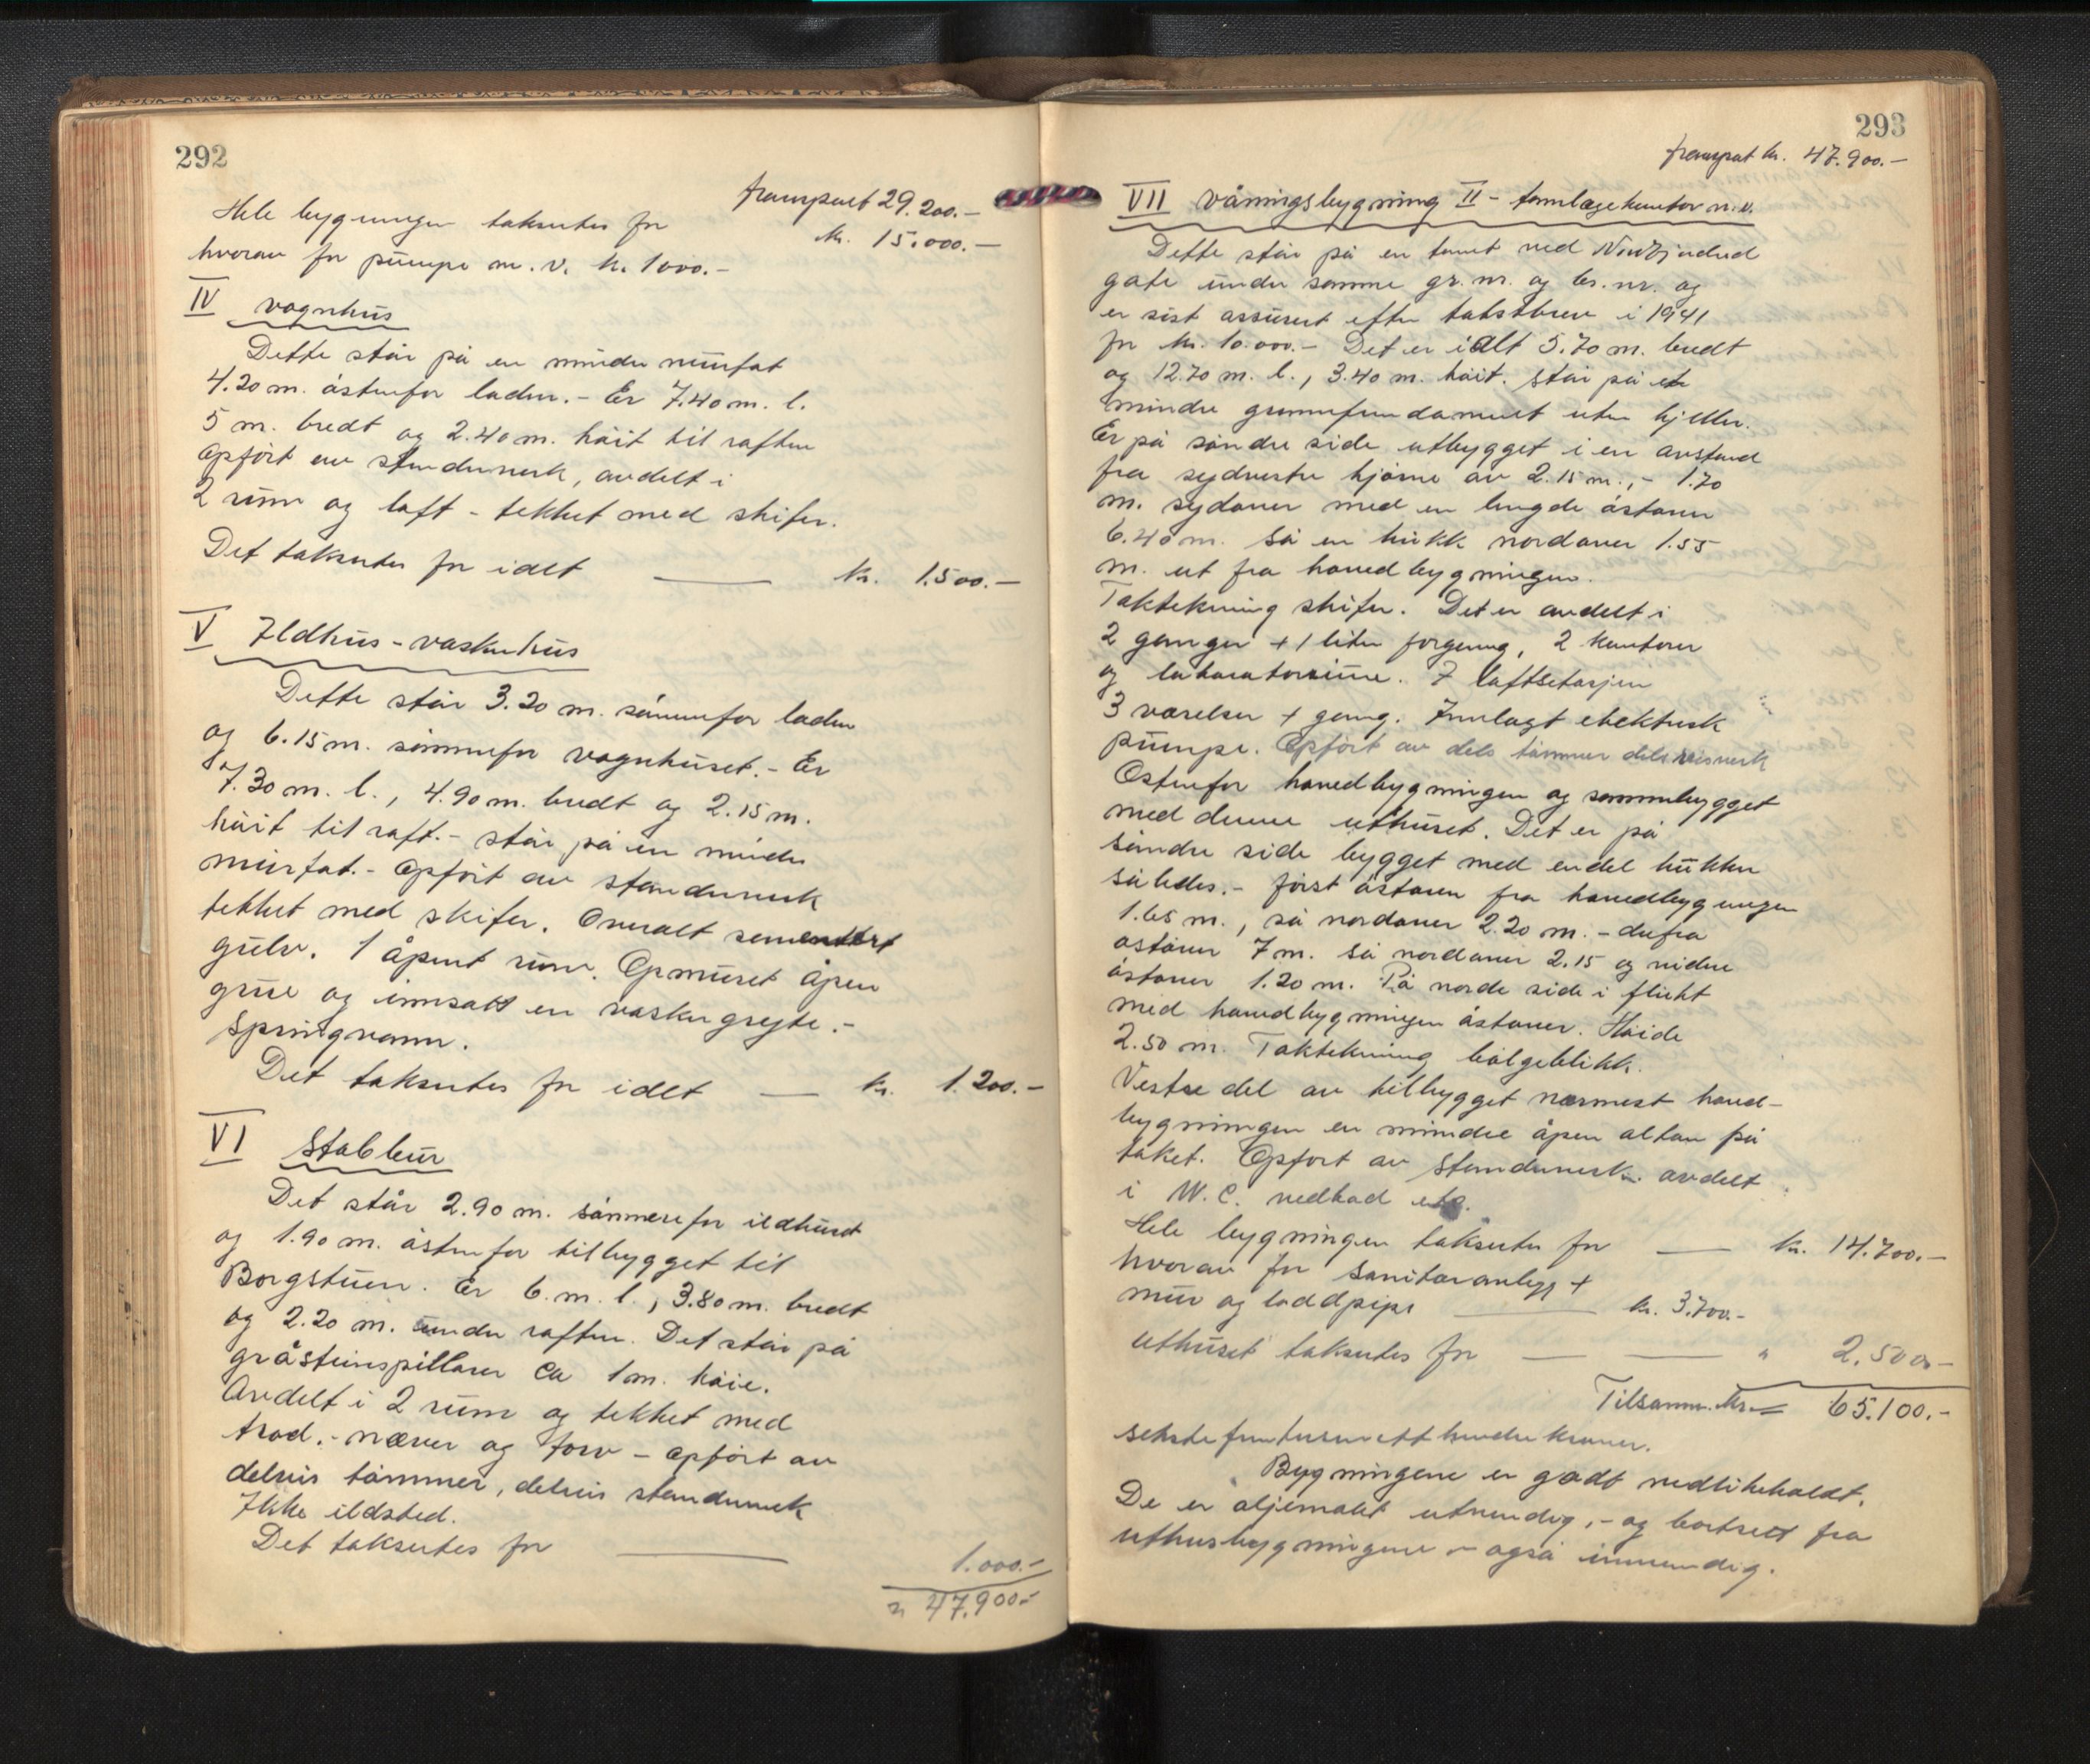 292
frampart 29.200.-
Hele bygningen takseres for kr. 15.000.-
hvorav for pumpe m. v. kr. 1000.-
IV vognhus
Dette står på en mindre murfot
4.20 m. östenfor laden.- Er 7.40 m. l.
5 m. bredt og 2.40 m. höit til raften
Opfört av stenderverk, avdelt i
2 rum og loft - tekket med skifer.
Det takseres for ialt — kr. 1.500.-
V Ildhus - vaskerhus
Dette står 3.20 m. sönnenfor laden
og 6.15 m. sönnenfor vognhuset.- Er
7.30 m. l., 4.90 m. bredt og 2.15 m.
höit til raft.- står på en mindre
murfot.- Opfört av stenderverk
tekket med skifer. Overalt sementert
gulv. 1 åpent rum. Opmuret åpen
grue og innsatt en vaskegryte.-
Springvann.
Det takseres for ialt — kr. 1.200.-
VI Stabbur
Det står 2.90 m. sönnenfor ildhuset
og 1.90 m. östenfor tilbygget til
Borgstuen. Er 6. m. l., 3.80 m. bredt
og 2.20 m. under raften. Det står på
gråsteinspillarer ca 1 m. höie.
Avdelt i 2 rum og tekket med
trod.- næver og torv - opfört av
delvis tömmer, delvis stenderverk
Ikke ildsted.
Det takseres for — 1.000.-
47.900.-
293
frampart kr. 47.900.-
VII våningsbygning II - tannlægekontor m.v.
Dette står på en tomt ved
gate under samme gr. nr. og br. nr. og
er sist assurert efter takstbrev i 1941
for kr. 10.000.- Det er ialt 5.70 m. bredt
og 12.70 m. l., 3.40 m. höit. Står på et
mindre grunnfundament uten kjeller.
Er på söndre side utbygget i en avstand
fra sydvestre hjörne av 2.15 m.,- 1.70
m. sydover med en lengde östover
6.40 m. Så en hukk nordover 1.55
m. ut fra hovedbygningen.
Taktekning skifer. Det er avdelt i
2 ganger + 1 liten forgang, 2 kontorer
og laboratorium. I loftsetasjen
3 værelser + gang. Innlagt elektrisk
pumpe. Opfört av dels tömmer dels reisverk
Östenfor hovedbygningen og sammenbygget
med denne uthuset. Det er på
söndre side bygget med endel hukker
således.- först östover fra hovedbygningen
1.65 m., så nordover 2.20 m.- derfra
östover 7 m. så nordover 2.15 og videre
östover 1.20 m. På nordre side i flukt
med hovedbygningen östover. Höide
2.50 m. Taktekning bölgeblikk.
Vestre del av tilbygget nærmest hoved-
bygningen er mindre åpen altan på
taket. Opfört av stenderverk. avdelt
i W.C. vedbod etc.
Hele bygningen takseres for — kr. 14.700.-
hvorav for sanitæranlegg +
mur og loddpipe — kr. 3.700.-
Uthuset takseres for — — " 2.500.-
Tilsamm. kr. = 65.100.-
sekstifemtusenetthundre kroner.
Bygningene er godt vedlikeholdt.
De er oljemalt utvendig,- og bortsett fra
uthusbygningene - også innvendig.